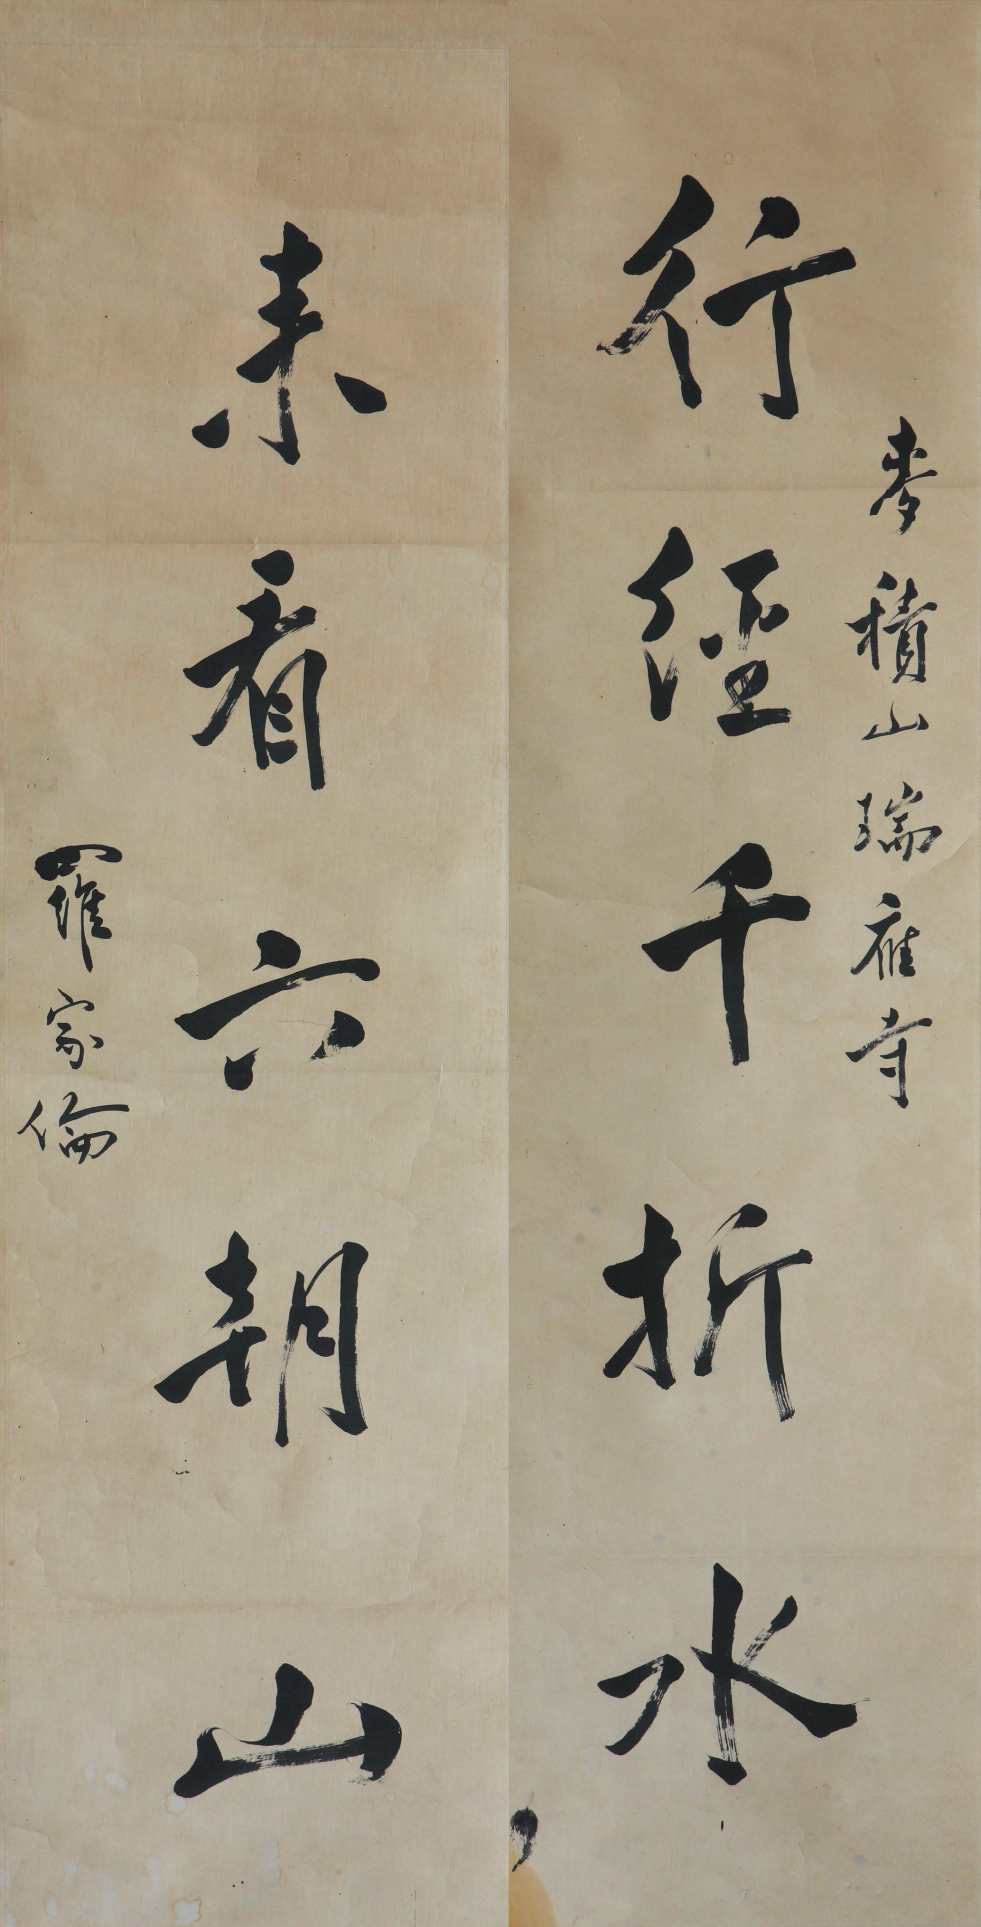 麥積山瑞應寺
行經千折水
來看六朝山
羅家倫